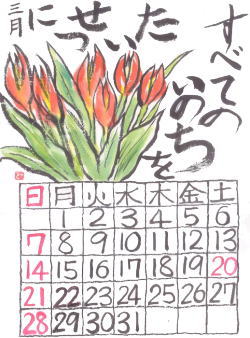 すべての
いのちを
たいせつに
三月
日月火水木金土
1 2 3 4 5 6
7 8 9 10 11 12 13
14 15 16 17 18 19 20
21 22 23 24 25 26 27
28 29 30 31